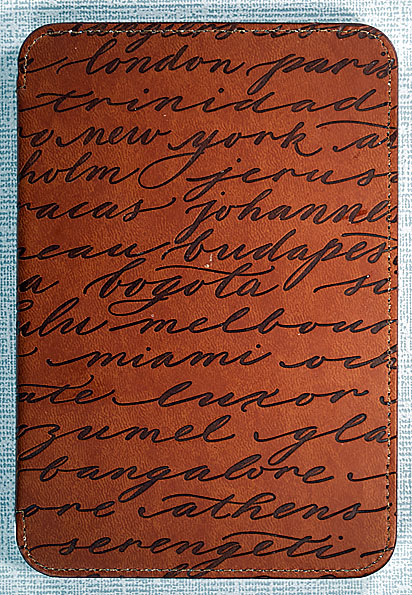 london paris
trinidad
o new york a
holm jerus
racas johannes
eau budapes
a bogota s
ulu melbour
miami och
ate luxor
zumel gla
bangalore
ore athens
serengeti